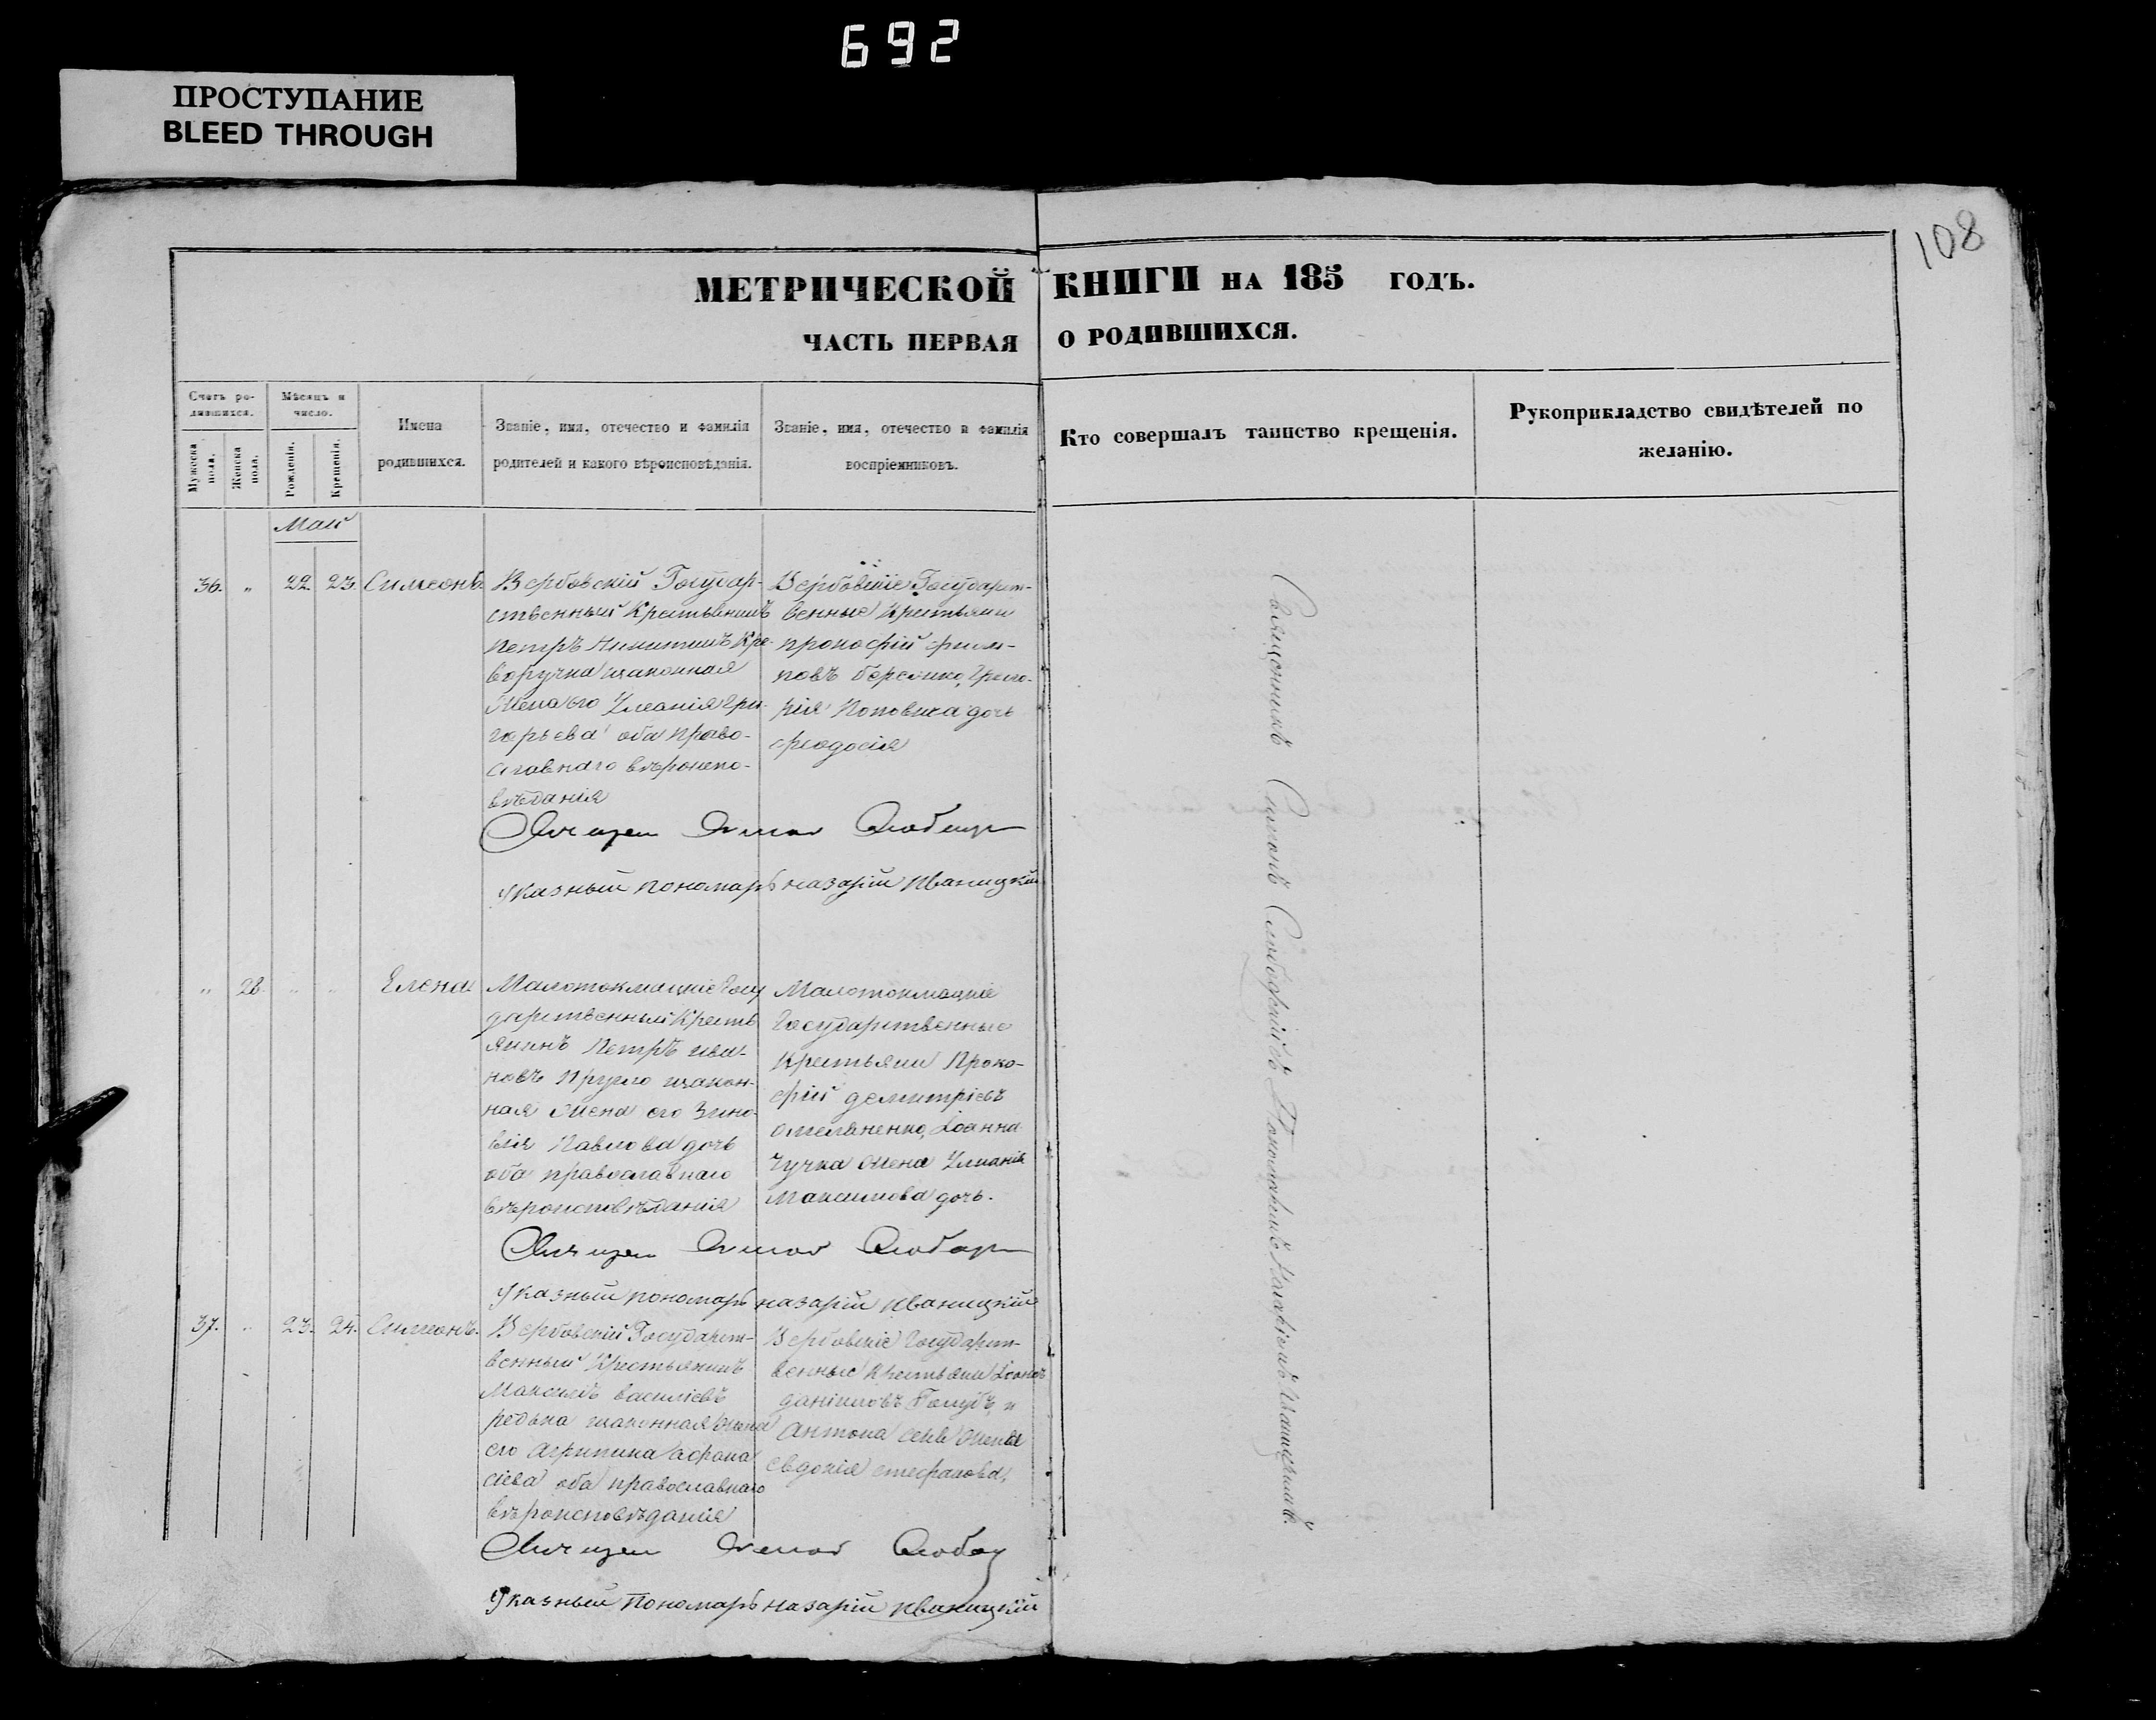 692
ПРОСТУПАНИЕ
BLEED THROUGH
108
МЕТРИЧЕСКОЙ КНИГИ НА 185 ГОДЪ.
ЧАСТЬ ПЕРВАЯ О РОДИВШИХСЯ.
Счетъ ро-
дившихся.
Мужеска пола.
Женска пола.
Мѣсяцъ и
число.
Рожденія.
Крещенія.
Имена
родившихся.
Званіе, имя, отечество и фамилія
родителей и какого вѣроисповѣданія.
Званіе, имя, отечество и фамилія
воспріемниковъ.
Кто совершалъ таинство крещенія.
Рукоприкладство свидѣтелей по
желанію.
Май
36. „ 22. 23. Симеонъ
Вербовскій Государ-
ственный Крестьянинъ
Петръ Никитинъ Кре-
воручка изаконная
Жена его Улеанія Гри-
горьева оба право-
славнаго вѣроиспо-
вѣданія
Вербовскіе Государст-
венные Крестьяни
прокофій филип-
повъ
Поповича дочь
феодосія
Указный пономарь назарій Иваницкій
„ 28. „ „ Елена
Малотокмацкіе Госу
дарственный Кресть
янинъ Петръ Ива-
новъ изакон-
ная Жена его Зино-
вія Павлова дочь
оба православнаго
вѣроисповѣданія
Малотокмацкіе
Государственные
Крестьяни Проко-
фій демитріевъ
омельяненко, Іоанна
Чучка Жена Улианія
Максимова дочь.
Указный пономарь назарій Иваницкій
37. „ 23. 24. Симеонъ.
Вербовскій Государст-
венный Крестьянинъ
Максимъ василіевъ
редька изаконная Жена
его агрипина афона
сіева оба православнаго
вѣроисповѣданія
Вербовскіе Государст-
венные Крестьяни Іоаннъ
даніиловъ Голубъ, и
Антона Жена
евдокія стефанова,
Указный Пономарь назарій Иваницкій
Священникъ Симеонъ Слюбарскій съ Пономаремъ Назаріемъ Иваницкимъ.